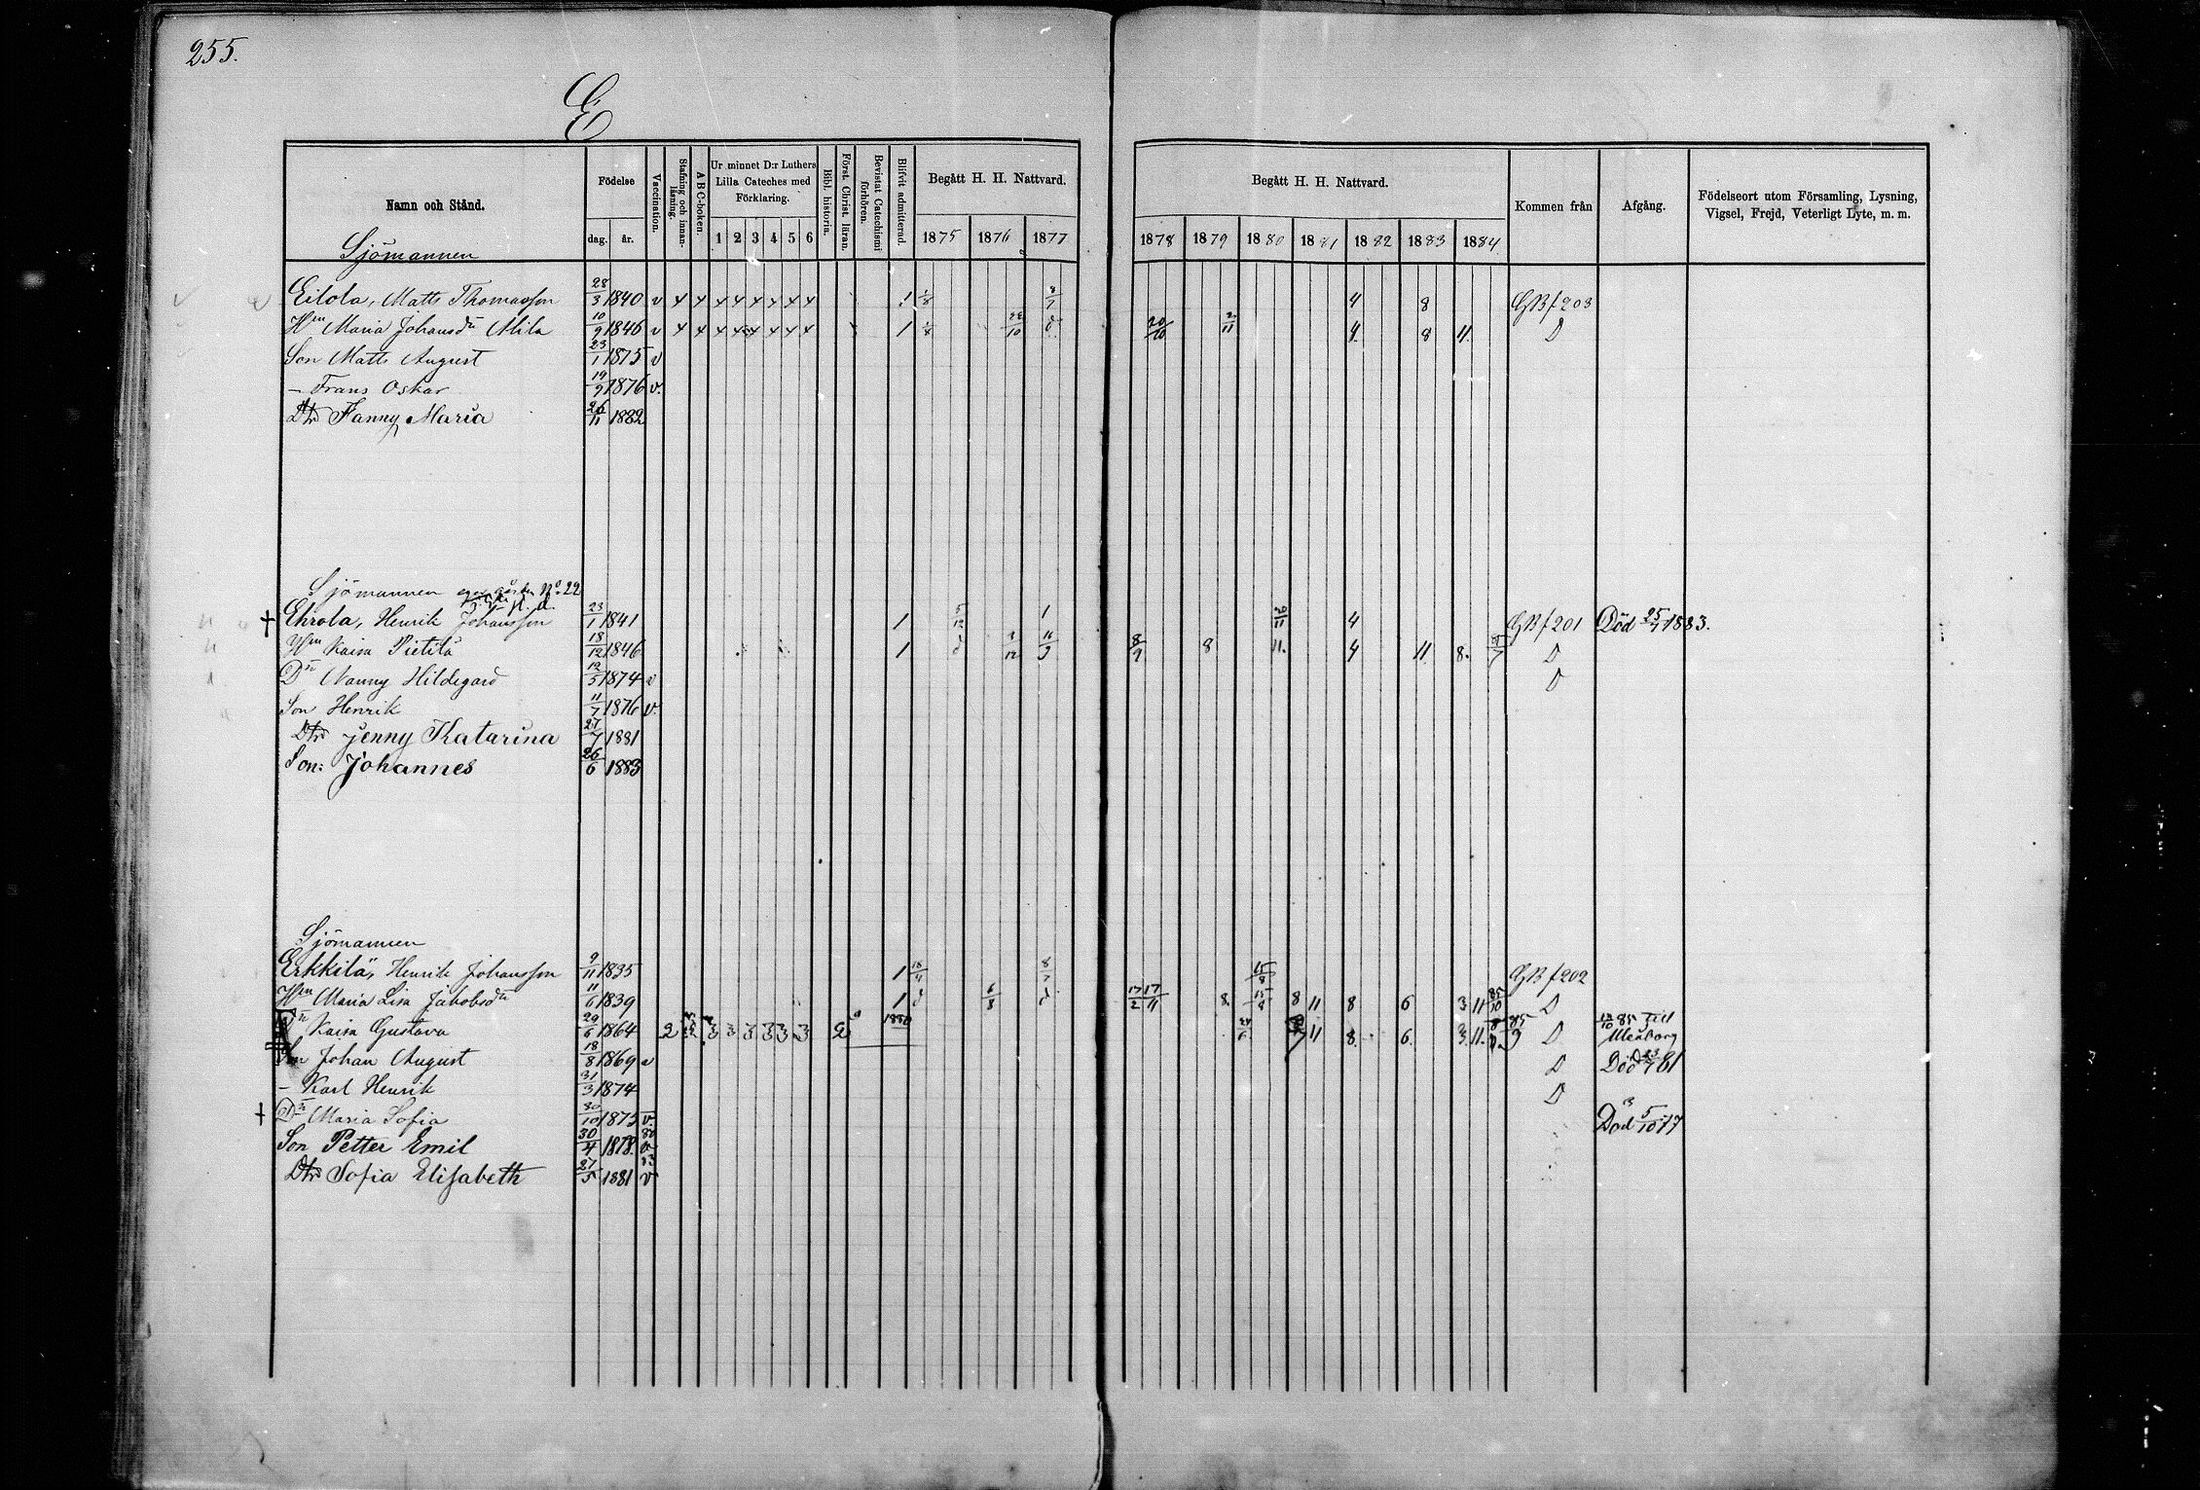 255.
E
Namn och Stånd. Födelse Vaccination. Stafning och innanläsning. ABC-boken. Ur minnet D:r Luthers Lilla Cateches med Förklaring. Bibl. historia. Först. Christ. läran. Bevistat Catechismi förhören. Blifvit admitterad. Begått H. H. Nattvard. Begått H. H. Nattvard. Kommen från Afgång. Födelseort utom Församling, Lysning, Vigsel, Frejd, Veterligt Lyte, m. m.
dag. år. 1 2 3 4 5 6 1875 1876 1877 1878 1879 1880 1881 1882 1883 1884
Sjömannen
Eilola, Matts Thomasson 28/3 1840 v 1 1/8 8/7 4 8 GB f 203
Hn Maria Johansdr Alila 10/9 1846 v 1 1/8 10 20/10 11 4. 8 11. D
Son Matts August 23/1 1875 v
– Frans Oskar 19/9 1876 v.
Dtr Fanny Maria 26/11 1882
Sjömannen No 22
Ehrola, Henrik Johansson 23/1 1841 1 1 4 GB f 201 Död 25/7 1883.
Hn Kaisa Pietilä 18/12 1846 1 12 8/9 8 11. 4 11 8. D
Dr Nanny Hildegard 12/5 1874 v D
Son Henrik 11/7 1876 v.
Dtr Jenny Katarina 27/7 1881
Son: Johannes 26/6 1883
Sjömannen
Erkkilä, Henrik Johansson 9/11 1835 1 18/4 8/7 15/8 GB f 202
Hn Maria Lisa Jakobsdr 11/6 1839 1 6/8 17/2 17/11 8. 8 11 8 6 3 11 85/10 D
Dr Kaisa Gustava 29/6 1864 2 3 3 3 3 3 3 2 1880 11 8. 6. 3. 11. 85 D 85 Till Uleåborg
Son Johan August 18/8 1869 v D Död 81
– Karl Henrik 31/3 1874 D
Dr Maria Sofia 30/10 1875 v. Död 5/10 77
Son Petter Emil 30/4 1878. v
Dtr Sofia Elisabeth 27/5 1881 v